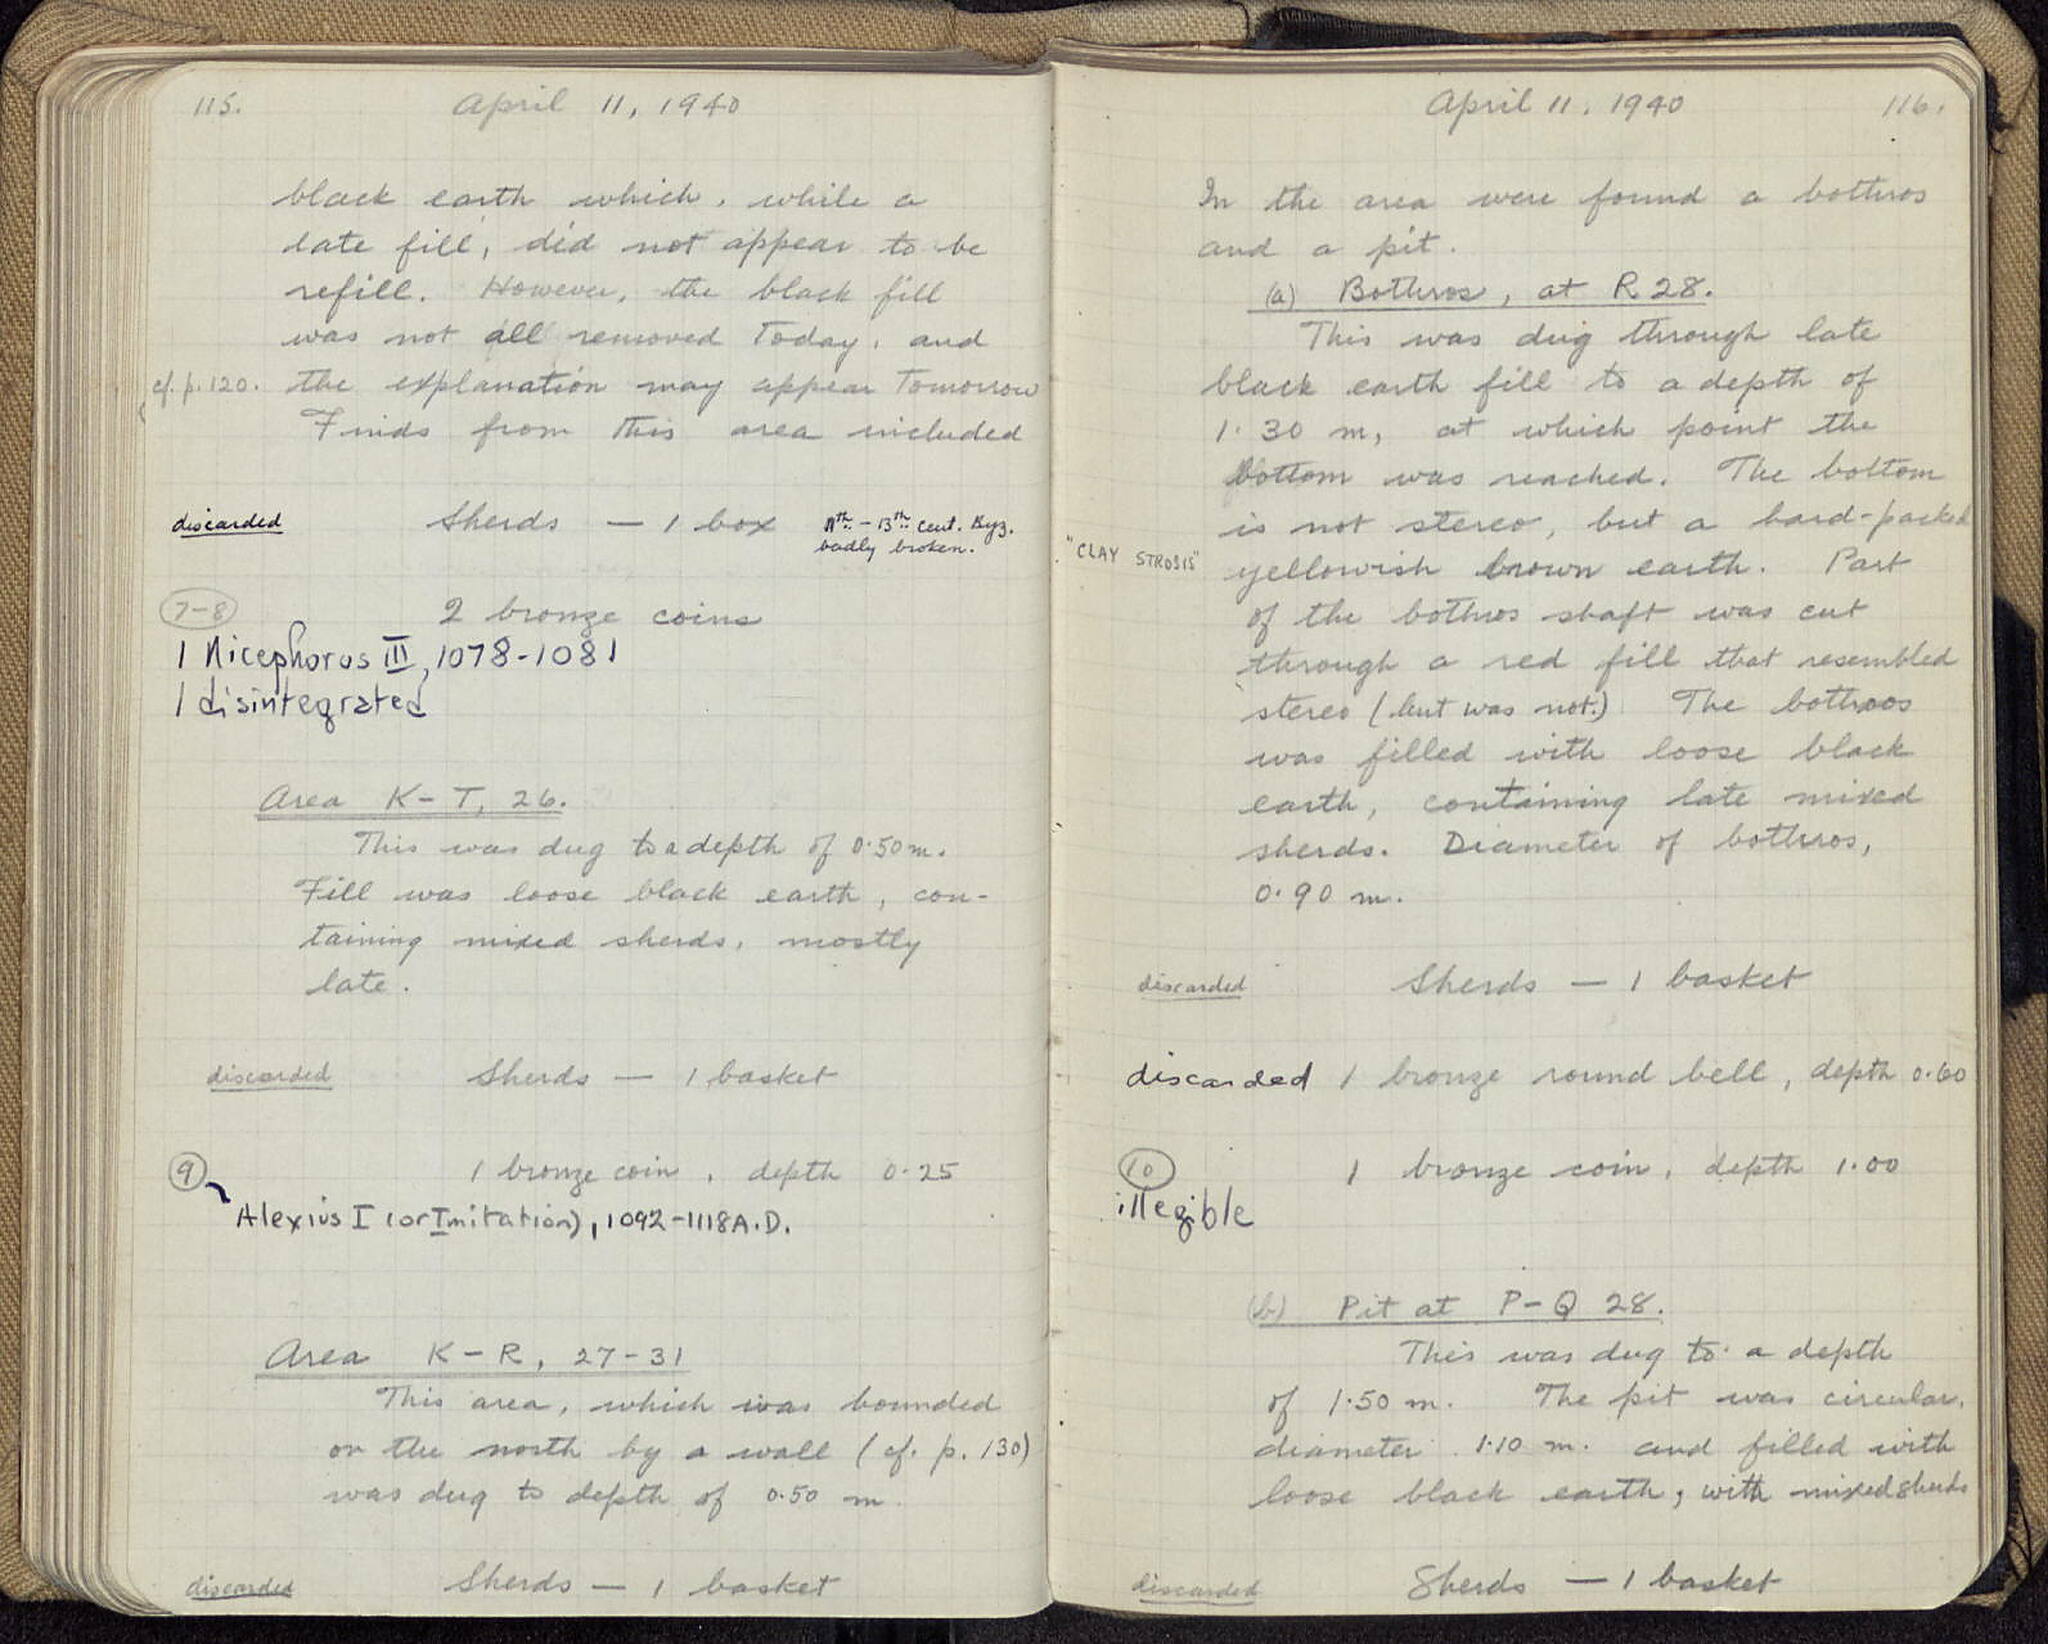 115. April 11, 1940
black earth which, while a
late fill, did not appear to be
refill. However, the black fill
was not all removed Today, and
cf. p. 120. the explanation may appear Tomorrow
Finds from this area included
discarded Sherds — 1 box 11th – 13th cent. Byz.
badly broken.
7-8 2 bronze coins
1 Nicephorus III, 1078-1081
1 disintegrated
Area K-T, 26.
This was dug to a depth of 0.50 m.
Fill was loose black earth, con-
taining mixed sherds, mostly
late.
discarded Sherds — 1 basket
9 1 bronze coin, depth 0.25
Alexius I (or Imitation), 1092-1118 A.D.
Area K-R, 27-31
This area, which was bounded
on the north by a wall (cf. p. 130)
was dug to depth of 0.50 m
discarded Sherds — 1 basket
April 11, 1940 116.
In the area were found a bothros
and a pit.
(a) Bothros, at R 28.
This was dug through late
black earth fill to a depth of
1.30 m, at which point the
bottom was reached. The bottom
is not stereo, but a hard-packed
"CLAY STROSIS" yellowish brown earth. Part
of the bothros shaft was cut
through a red fill that resembled
stereo (but was not.) The bothros
was filled with loose black
earth, containing late mixed
sherds. Diameter of bothros,
0.90 m.
discarded Sherds — 1 basket
discarded 1 bronze round bell, depth 0.60
10 1 bronze coin, depth 1.00
illegible
(b) Pit at P-Q 28.
This was dug to a depth
of 1.50 m. The pit was circular,
diameter 1.10 m. and filled with
loose black earth, with mixed sherds
discarded Sherds — 1 basket